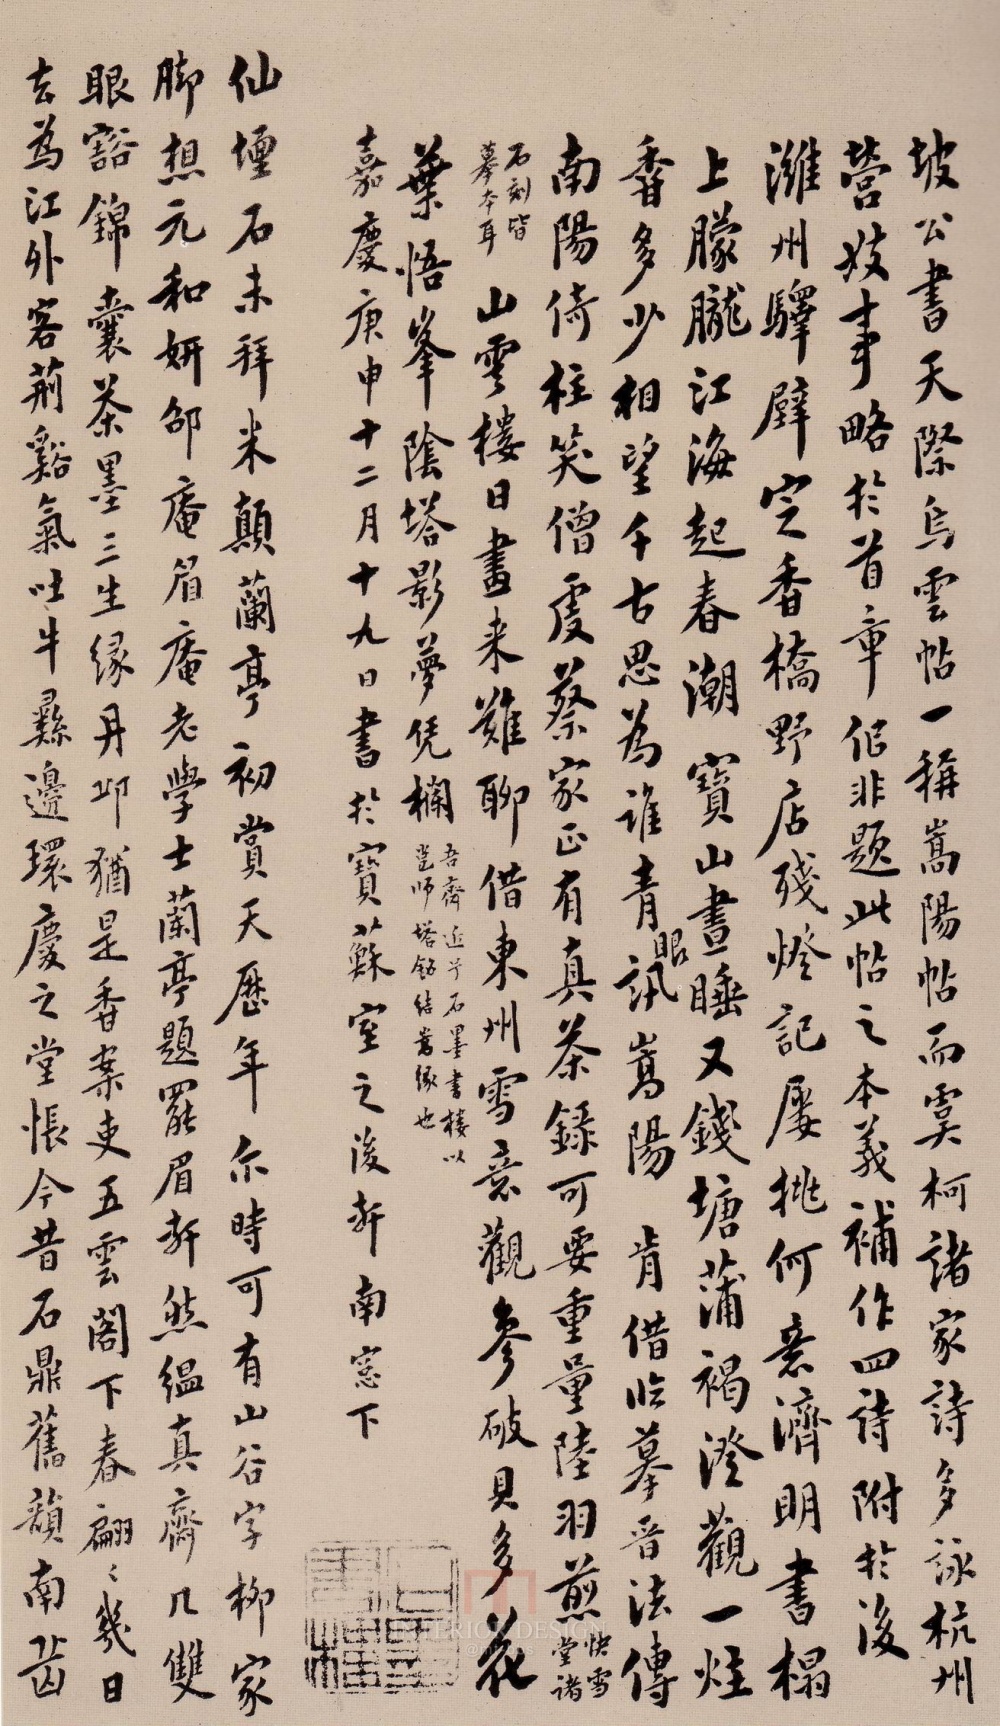 坡公書天際烏雲帖一稱嵩陽帖而虞柯諸家詩多詠杭州
營妓事略於首章似非題此帖之本義補作四詩附於後
濰州驛壁定香橋野店殘燈記屢挑何意濟明書榻
上朦朧江海起春潮 寶山晝睡又錢塘蒲褐澄觀一炷
香多少相望千古思為誰青眼訊嵩陽 肯借臨摹晉法傳
南陽倚柱笑僧虔蔡家正有真茶錄可要重量陸羽煎快雪堂諸
石刻皆摹本耳 山雲樓日畫來難聊借東州雪意觀參破貝多花
葉悟峯陰塔影夢凭欄吾齋近於石墨書樓以崑師塔銘結嵩緣也
嘉慶庚申十二月十九日書於寶蘇室之後軒南窓下
仙壇石未拜米顛蘭亭初賞天歷年尔時可有山谷字柳家
脚想元和妍邵庵眉庵老學士蘭亭題罷眉軒然緼真齋几雙
眼豁錦囊茶墨三生緣丹邱猶是香案吏五雲閣下春翩〻幾日
去為江外客荊谿氣吐牛鼷邊環慶之堂悵今昔石鼎舊韻南宮
INTERIOR DESIGN